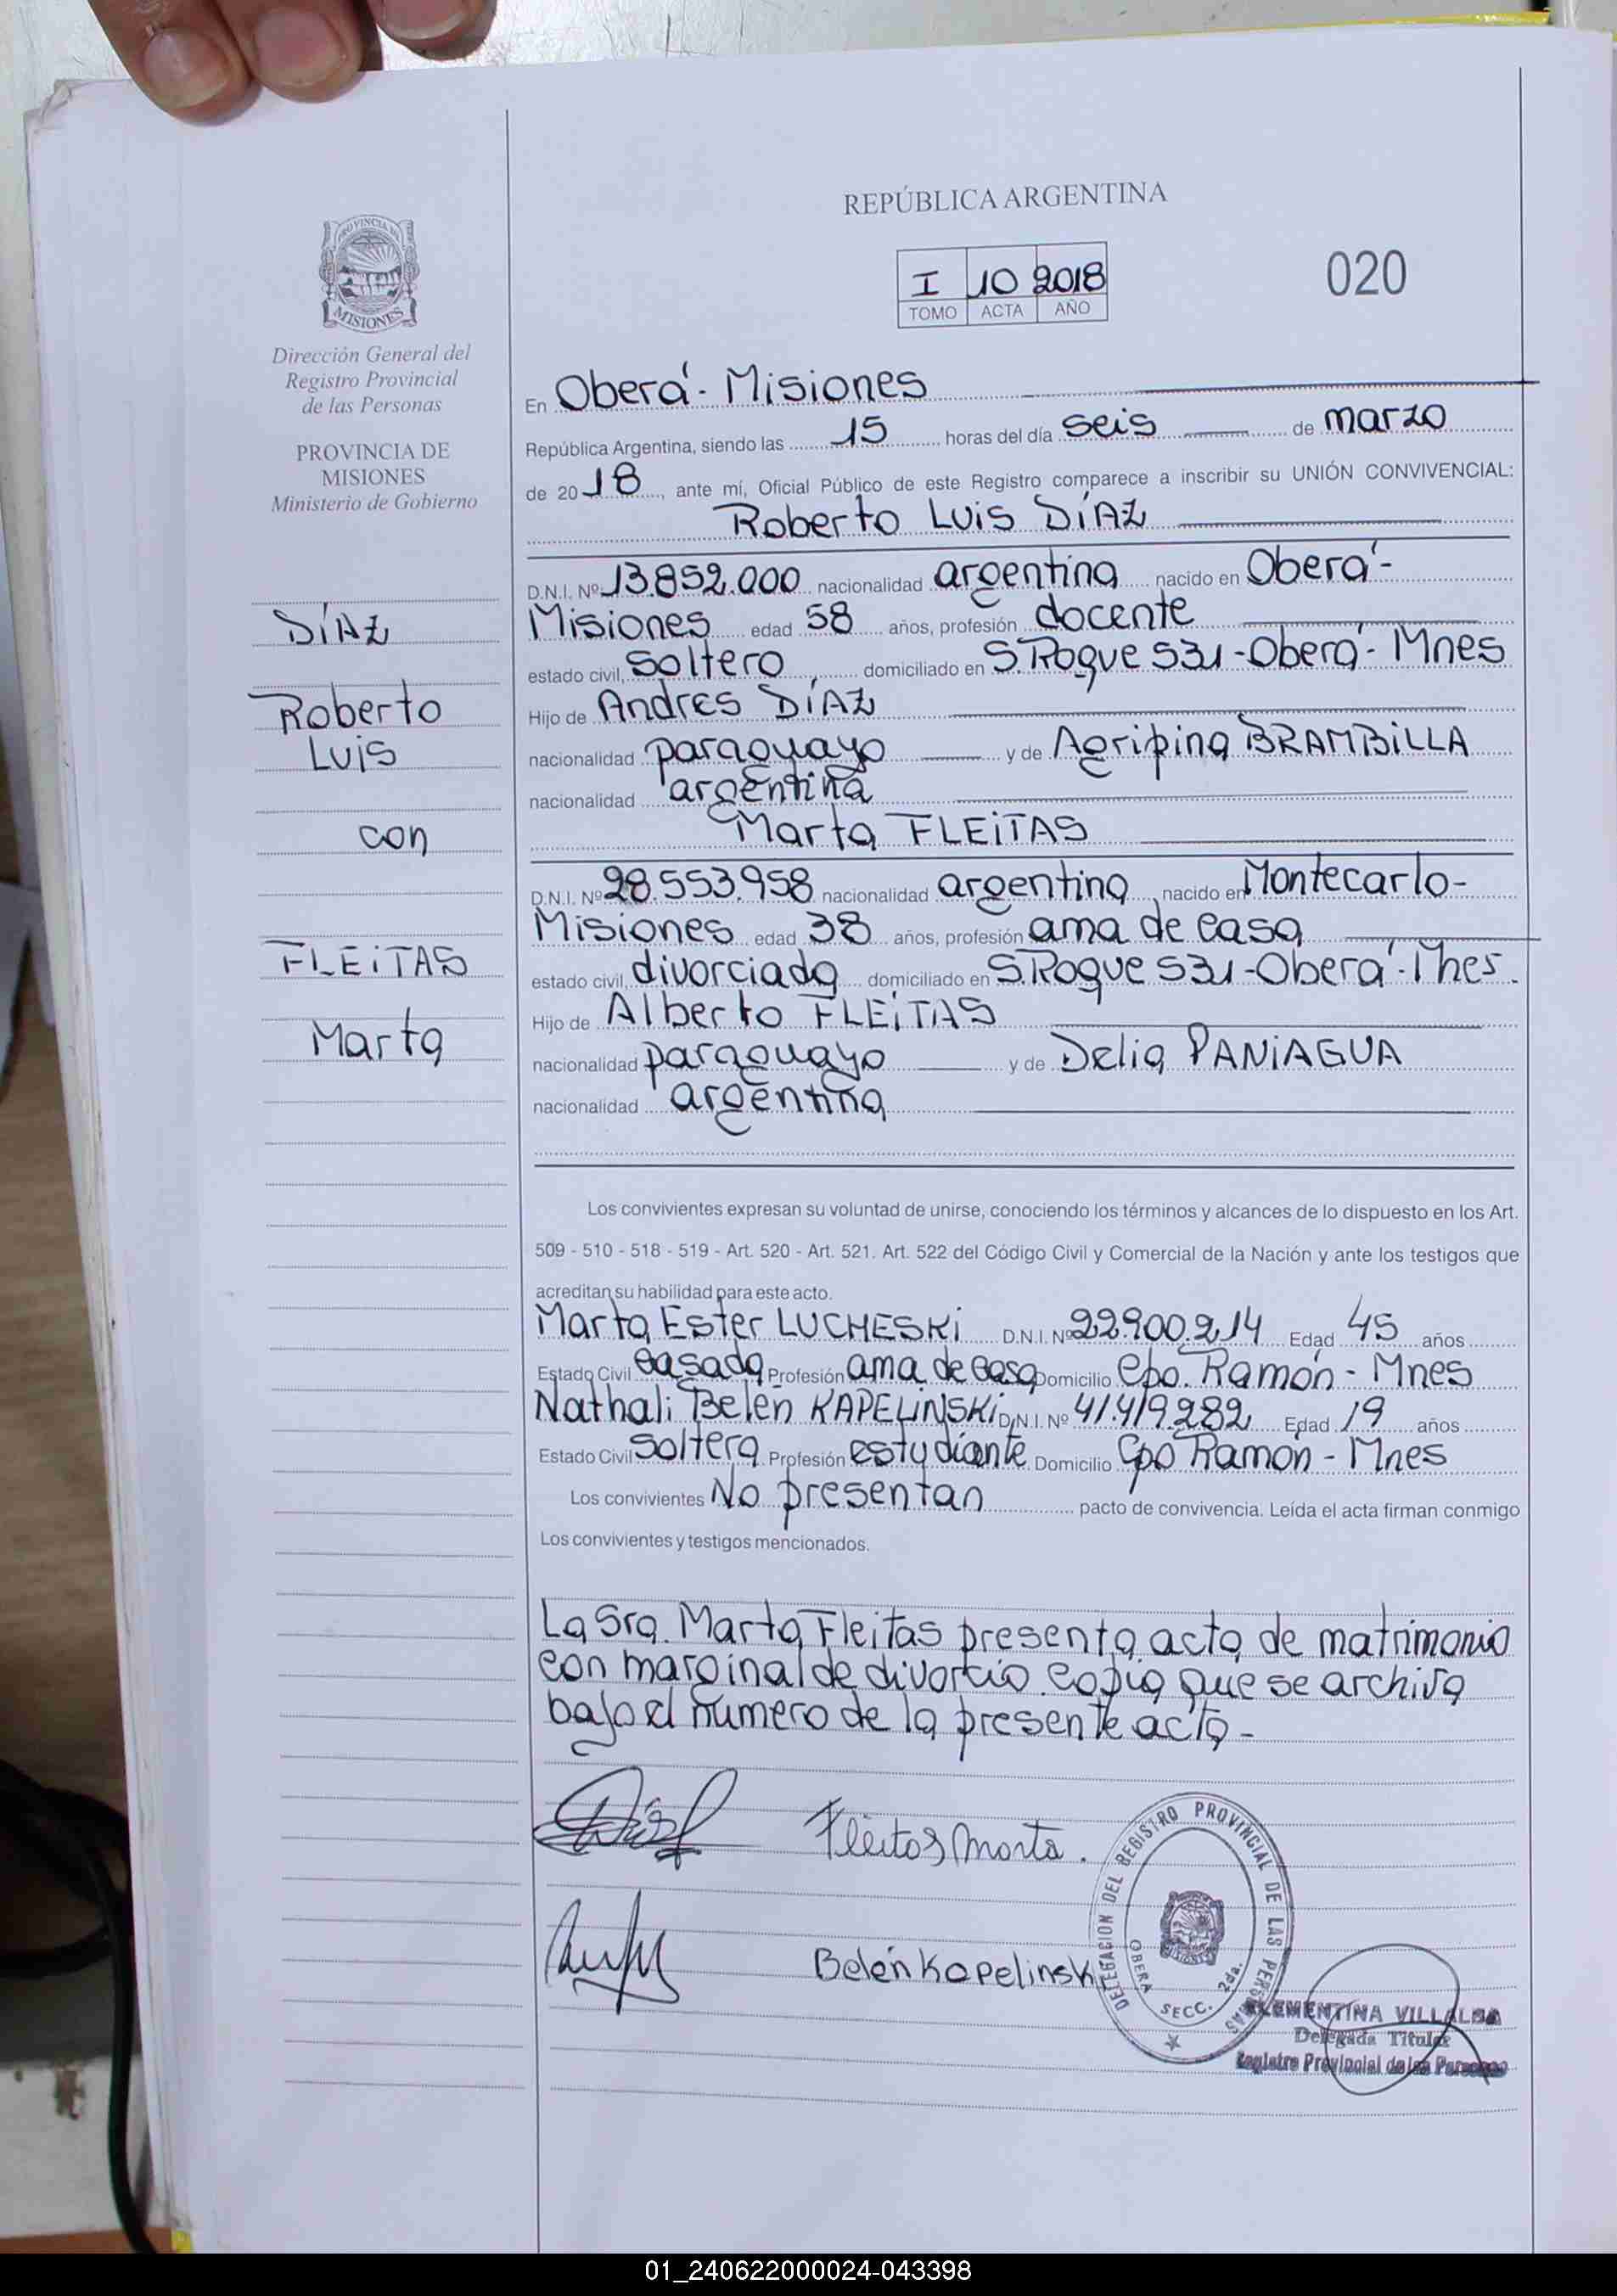 REPÚBLICA ARGENTINA
I 10 2018
TOMO ACTA AÑO
020
PROVINCIA DE
MISIONES
Dirección General del
Registro Provincial
de las Personas
PROVINCIA DE
MISIONES
Ministerio de Gobierno
DÍAZ
Roberto
Luis
con
FLEITAS
Marta
En Oberá - Misiones
República Argentina, siendo las 15 horas del día seis de marzo
de 2018, ante mí, Oficial Público de este Registro comparece a inscribir su UNIÓN CONVIVENCIAL:
Roberto Luis DÍAZ
D.N.I. Nº 13.852.000 nacionalidad argentina nacido en Oberá-
Misiones edad 58 años, profesión docente
estado civil, soltero domiciliado en S. Roque 531-Oberá- Mnes
Hijo de Andres DÍAZ
nacionalidad paraguayo y de Agripina BRAMBILLA
nacionalidad argentina
Marta FLEITAS
D.N.I. Nº 28.553.958 nacionalidad argentina nacido en Montecarlo-
Misiones edad 38 años, profesión ama de casa
estado civil, divorciada domiciliado en S. Roque 531-Oberá-Mnes.
Hijo de Alberto FLEITAS
nacionalidad paraguayo y de Delia PANIAGUA
nacionalidad argentina
Los convivientes expresan su voluntad de unirse, conociendo los términos y alcances de lo dispuesto en los Art.
509 - 510 - 518 - 519 - Art. 520 - Art. 521. Art. 522 del Código Civil y Comercial de la Nación y ante los testigos que
acreditan su habilidad para este acto.
Marta Ester LUCHESKI D.N.I. Nº 22.900.214 Edad 45 años
Estado Civil casada Profesión ama de casa Domicilio Cpo. Ramón - Mnes
Nathali Belén KAPELINSKI D.N.I. Nº 41.419.282 Edad 19 años
Estado Civil soltera Profesión estudiante Domicilio Cpo Ramón - Mnes
Los convivientes No presentan pacto de convivencia. Leída el acta firman conmigo
Los convivientes y testigos mencionados.
La Sra. Marta Fleitas presenta acta de matrimonio
con marginal de divorcio. copia que se archiva
bajo el numero de la presente acta-
Fleitas Marta.
Belén Kapelinski
DELEGACION DEL REGISTRO PROVINCIAL DE LAS PERSONAS
OBERA SECC. 2da.
CLEMENTINA VILLALBA
Delegada Titular
Registro Provincial de las Personas
01_240622000024-043398